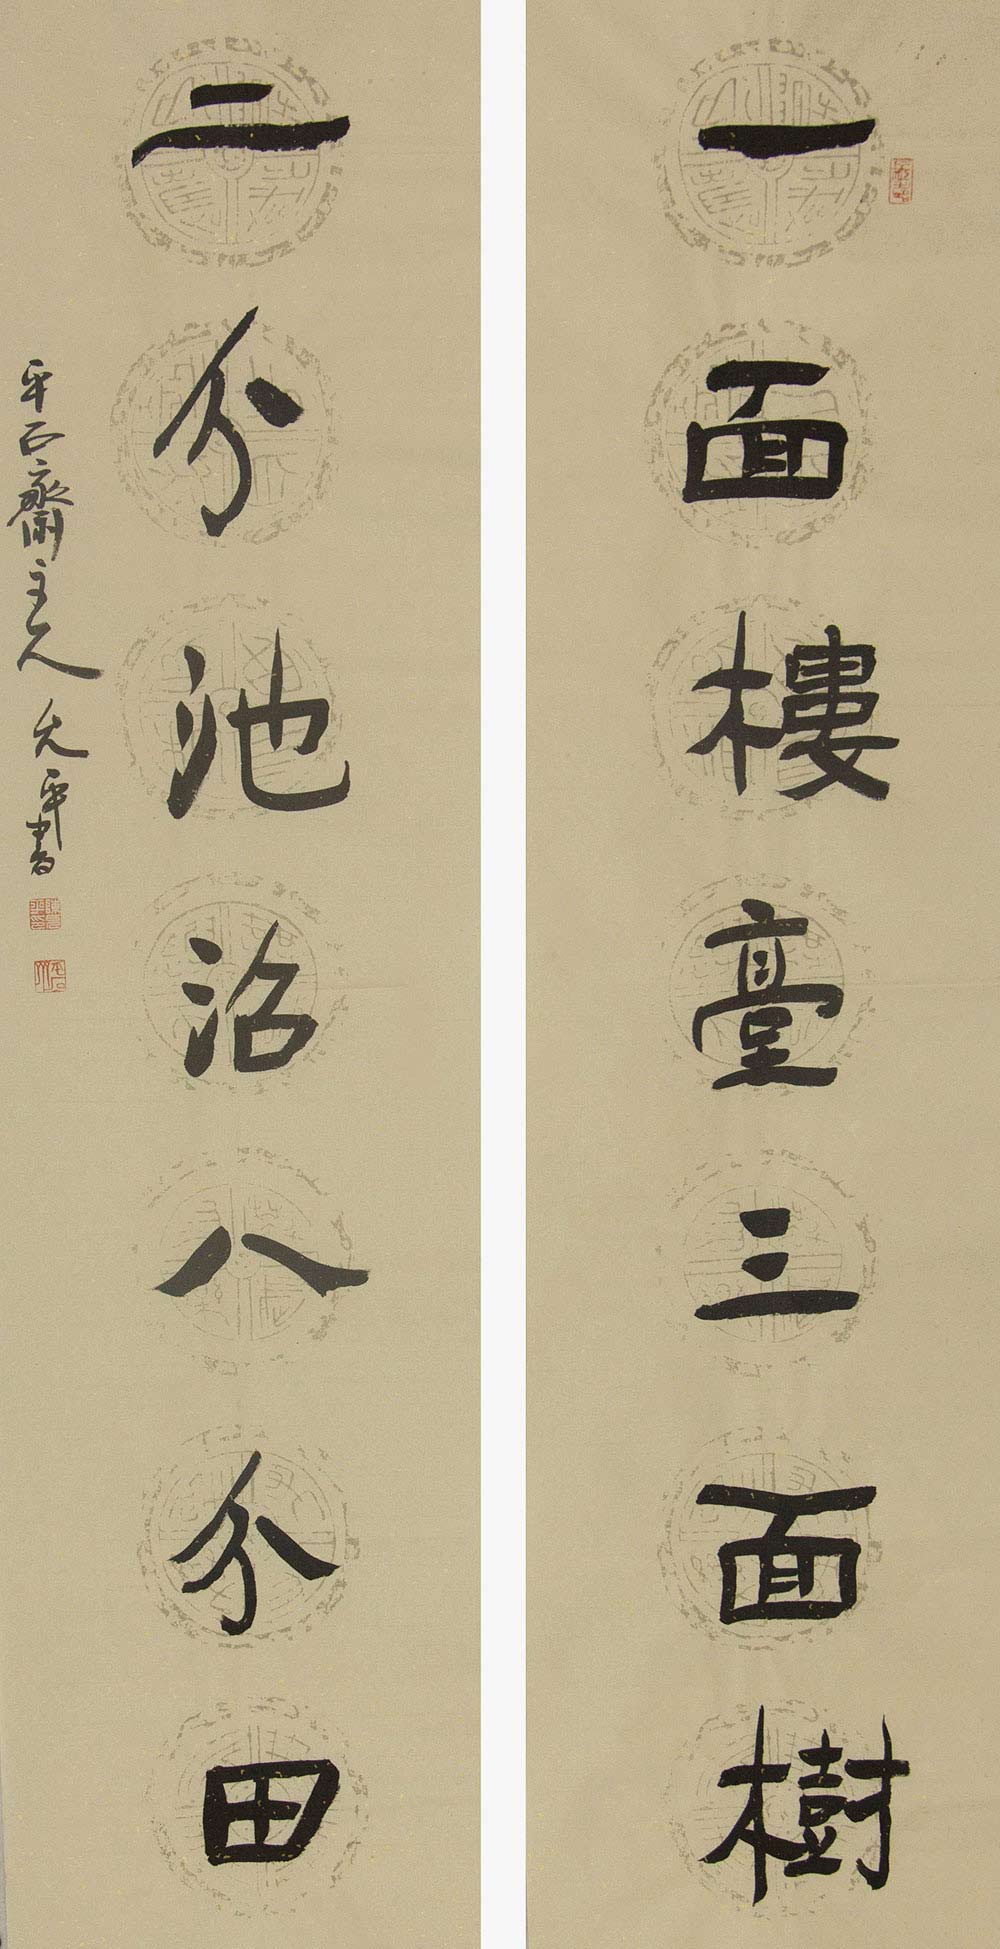 一面樓臺三面樹
二分池沼八分田
平正齋主人允平書